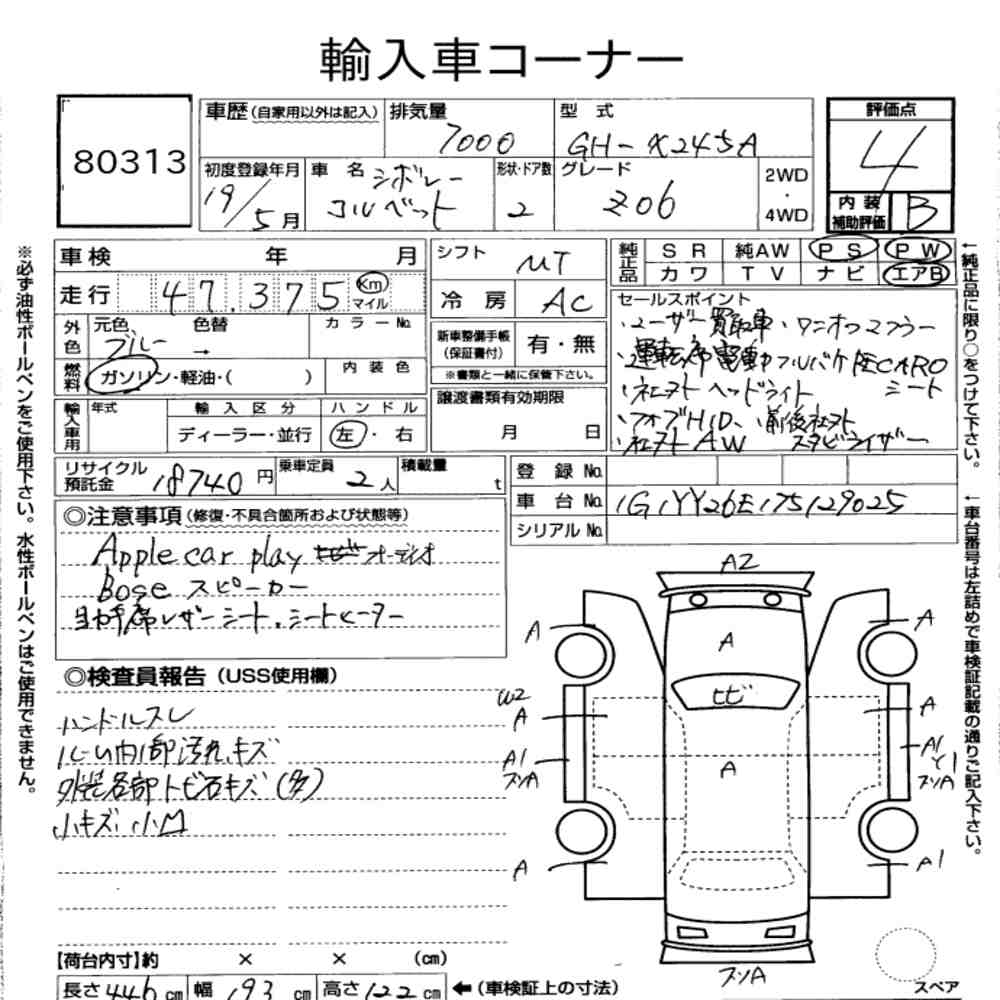 輸入車コーナー
80313
車歴(自家用以外は記入) 排気量 型式 評価点
7000 GH-X245A 4
初度登録年月 車名 シボレー 形状・ドア数 グレード 2WD・4WD
19/5月 コルベット 2 Z06
内装補助評価 B
車検 年 月
走行 47.375 Km マイル
外色 元色 色替 カラーNo.
ブルー →
燃料 ガソリン・軽油・( ) 内装色
輸入車用 年式 輸入区分 ハンドル
ディーラー・並行 左・右
シフト MT
冷房 AC
新車整備手帳(保証書付) 有・無
※書類と一緒に保管下さい。
譲渡書類有効期限
月 日
純正品 SR 純AW PS PW
カワ TV ナビ エアB
セールスポイント
・ユーザー買取車・ワンオフマフラー
・運転席電動フルバケRECAROシート
・社外ヘッドライト
・フォグHID、・前後社外スタビライザー
・社外AW
リサイクル預託金 18740円 乗車定員 2人 積載量 t
登録No.
車台No. 1G1YY26E175129025
シリアルNo.
◎注意事項(修復・不具合箇所および状態等)
Apple car play オーディオ
Bose スピーカー
助手席レザーシート、シートヒーター
◎検査員報告(USS使用欄)
ハンドルスレ
ルーム内部汚れキズ
外装各部トビ石キズ(多)
小キズ、小凹
A2
A
A
A
ヒビ
W2
A
A
A1
ソソA
A
A1
Y1
ソソA
A
A1
ソソA
スペア
【荷台内寸】約 × × (cm)
長さ 446 cm 幅 193 cm 高さ 122 cm ←(車検証上の寸法)
※必ず油性ボールペンをご使用下さい。水性ボールペンはご使用できません。
←純正品に限り○をつけて下さい。
←車台番号は左詰めで車検証記載の通りご記入下さい。